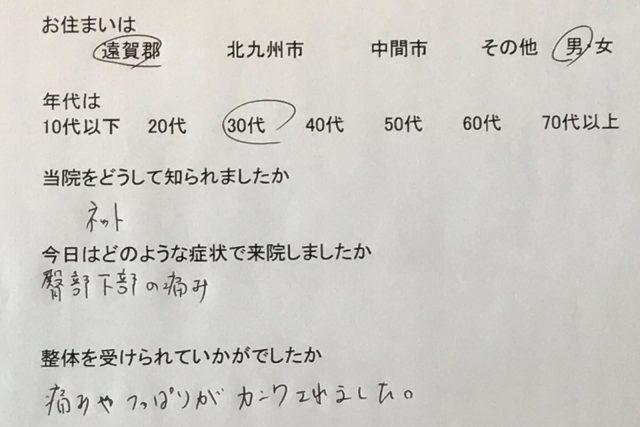 お住まいは
遠賀郡 北九州市 中間市 その他 男・女
年代は
10代以下 20代 30代 40代 50代 60代 70代以上
当院をどうして知られましたか
ネット
今日はどのような症状で来院しましたか
臀部下部の痛み
整体を受けられていかがでしたか
痛みや つっぱりが カンワされました。